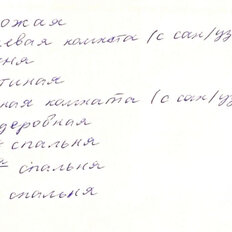 ожая
евая комната (с сан/уз
ня
тиная
ная комната (с сан/уз
деровная
спальня
ая спальня
спальня